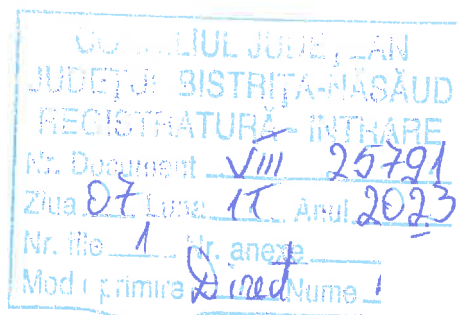 CONSILIUL JUDEȚEAN
JUDEȚUL BISTRIȚA-NĂSĂUD
REGISTRATURĂ - INTRARE
Nr. Document VIII 25791
Ziua 07 Luna 11 Anul 2023
Nr. file 1 Nr. anexe
Mod primire Direct Nume